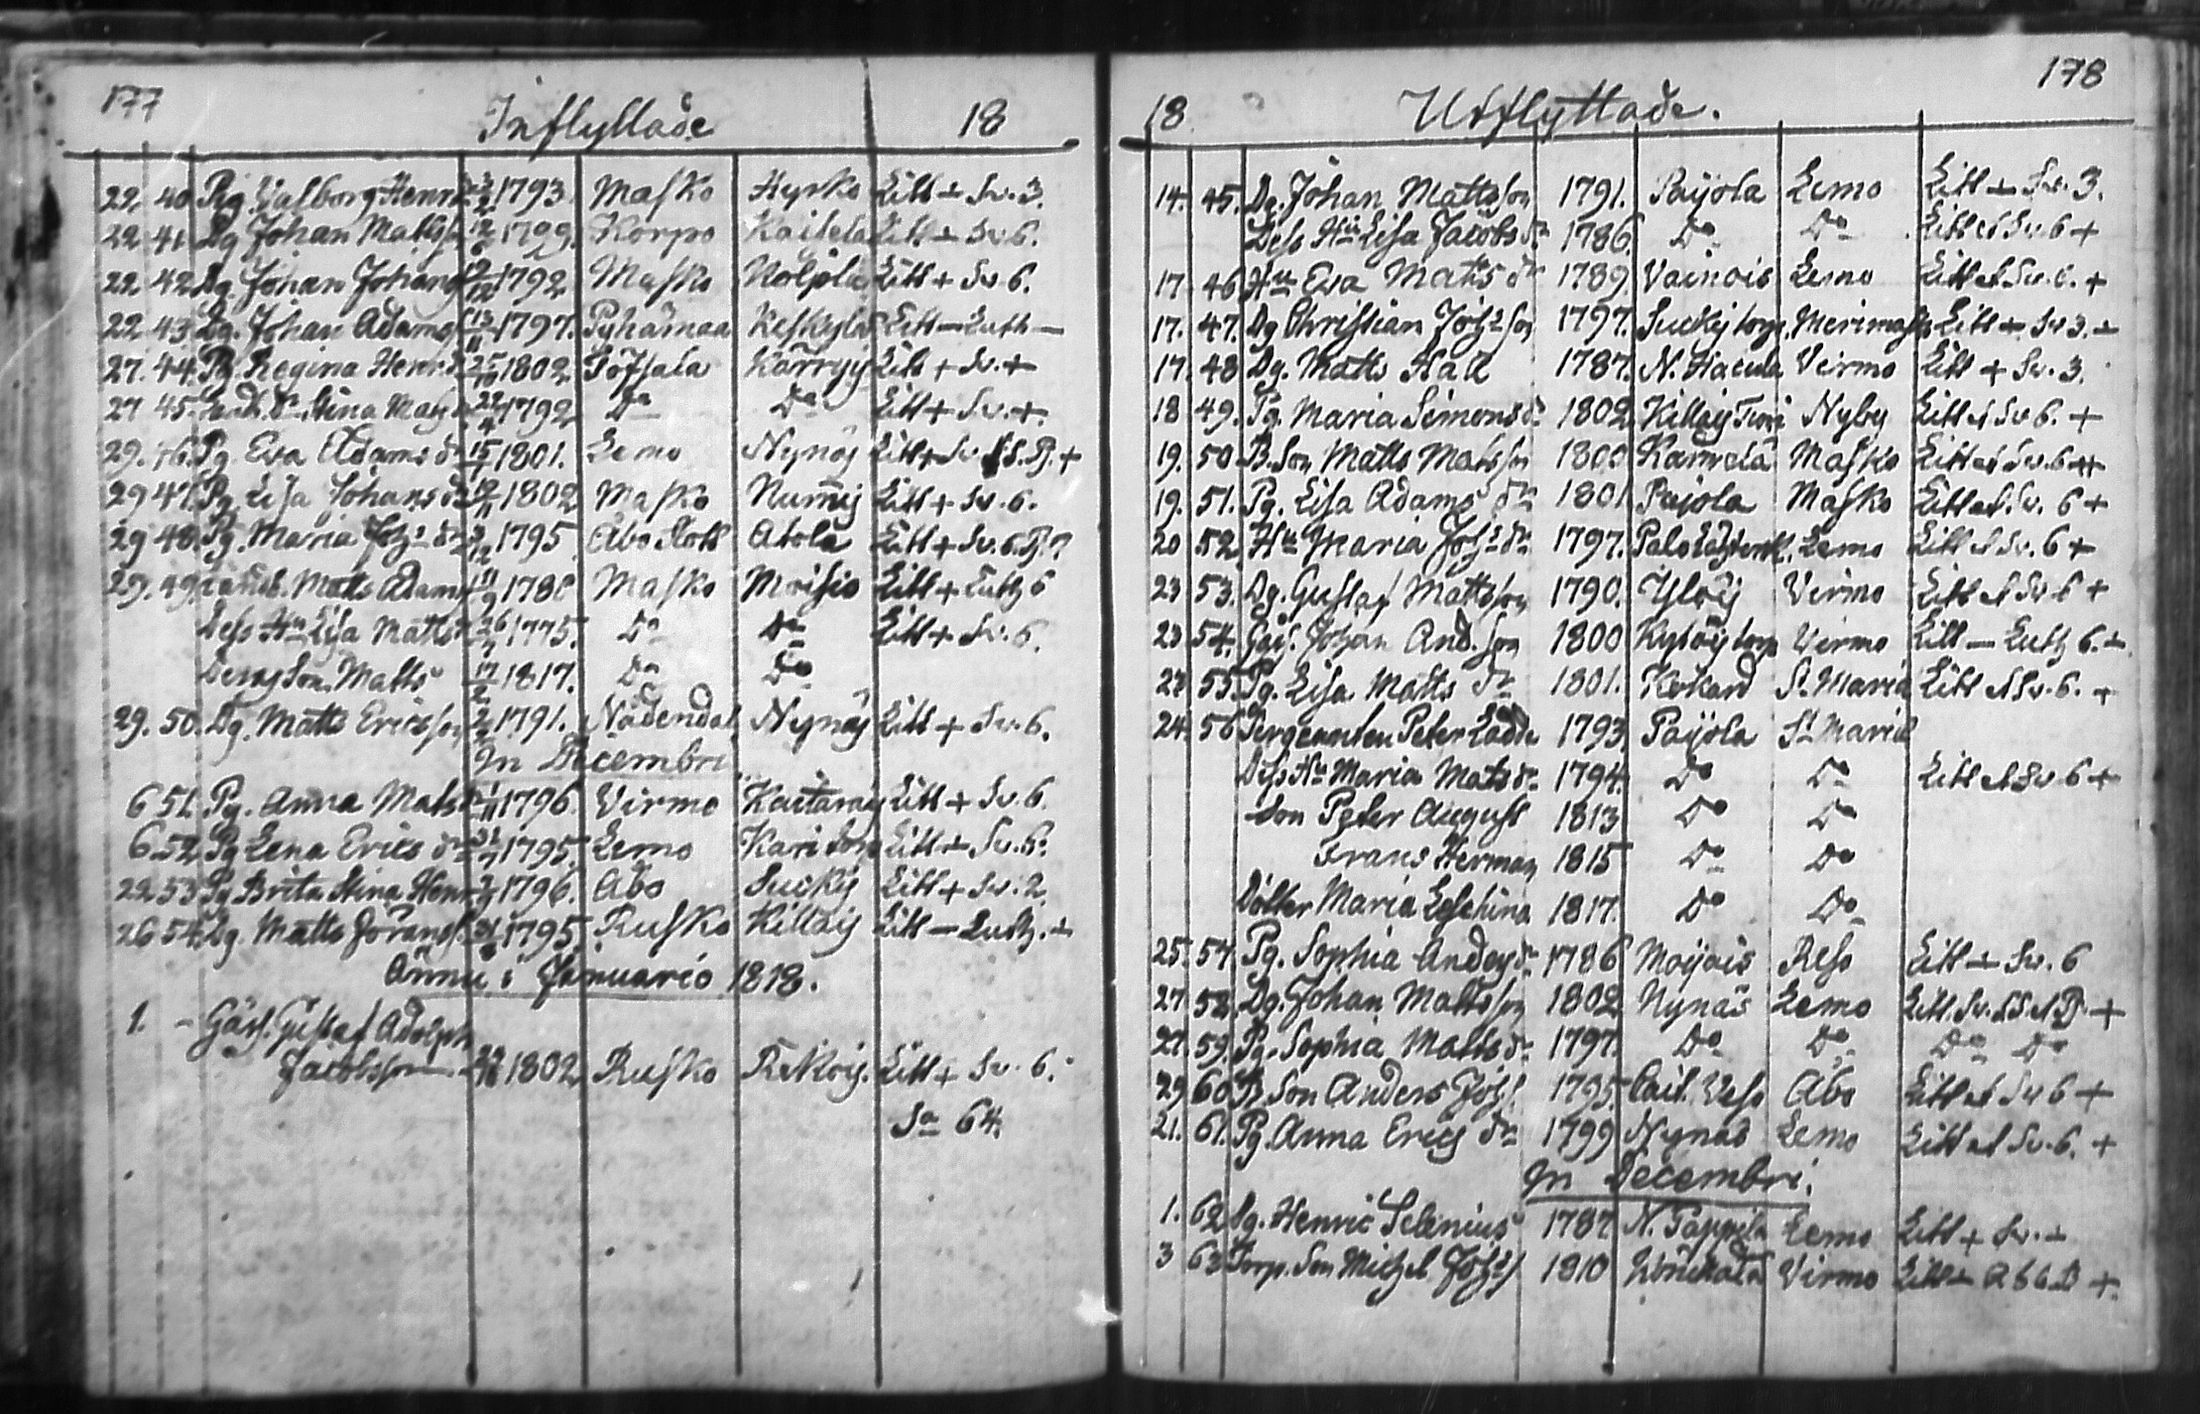 177
Inflyttade 18
22. 40 Pig. Valborg Henr 1793. Masko Hyrko Litt + Sv. 3.
22 41 Dg Johan Matts 12/6 1799. Korpo Kaisela Litt + Sv. 6.
22. 42 Dg. Johan Johans 1792 Masko Nolpla Litt + Sv 6.
22 43 Dg. Johan Adams 13/11 1797. Pyhämaa Keskeylä Litt — Luth —
27. 44. Pg Regina Henr 25/10 1802 Töfsala Karryis Litt + Sv. +
27 45. Stina Mats 22/4 1792 Do Do Litt + Sv. +.
29. 46. Pg. Eva Adams dr 15/1 1801. Lemo Nynäs Litt + Sv. S.S. Pj. +
29 47. Pg Lisa Johans dr 1802 Masko Nummis Litt + Sv. 6.
29 48. Pg. Maria Johs dr 1795 Åbo Slott Atola Litt + Sv. 6. Pj. ?
29. 49. Matts Adams 178 Masko Moisio Litt + Luth 6
Dess Hu Lisa Matts 26/2 1775. Do Do Litt + Sv. 6.
Deras Son. Matts 17/2 1817. Do Do
29. 50. Dg. Matts Ericsson 1791. Nådendal Nynäs Litt + Sv. 6.
In Decembri
6 51. Pg. Anna Mats 1/11 1796. Virmo Kaitaray Litt + Sv. 6.
6 52 Pg Lena Erics dr 1795. Lemo Karitorp Litt + Sv. 6.
22 53 Pg Brita Stina Henr 1796. Åbo Suckis Litt + Sv. 2.
26 54. Dg. Matts Jörans 1795. Rusko Killais Litt — Luth. +
Ännu i Januario 1818.
1. – Gåss. Gustaf Adolph
Jacobsson 1802 Rusko Rekois. Litt + Sv. 6.
Sa 64.
178
18 Utflyttade.
14. 45. Dg. Johan Mattsson 1791. Payola Lemo Litt + Sv. 3.
Dess Hu Lisa Jacobs dr 1786. Do Do Litt et Sv. 6 +
17 46 Hu Eva Matts dr 1789. Vainois Lemo Litt et Sv. 6. +
17. 47. Dg Christian Johsson 1797. Suckis torp. Merimasku Litt + Sv 3. +
17. 48 Dg. Matts Hall 1787. N. Haeula Virmo Litt + Sv. 3.
18 49. Pg. Maria Simons dr 1802 Killais Nyby Litt et Sv 6. +
19. 50 B. Son Matts Matsson 1800 Karvela Masko Litt et Sv. 6 +
19. 51. Pg. Lisa Adams dr 1801 Pajola Masko Litt et. Sv. 6 +
20 52. Hu Maria Johs dr 1797. Lemo Litt et Sv. 6 +
23 53. Dg. Gustaf Mattsson 1790. Virmo Litt et Sv 6 +
23 54. Gåss. Johan And. son 1800 Kyläis torp Virmo Litt — Luth 6. +
23 55. Pg. Lisa Matts dr 1801. Kokard St. Marie Litt et Sv. 6. +
24. 56 Sergeanten Peter Ladde 1793. Payola St Marie
Dess Hu Maria Mats dr 1794. Do Do Litt et Sv 6 +
Son Peter August 1813 Do Do
Frans Herman 1815 Do Do
Dotter Maria 1817. Do Do
25. 57. Pg. Sophia Anders dr 1786 Moijois Reso Litt + Sv. 6
27 58. Dg. Johan Mattsson 1802 Nynäs Lemo Litt. Sv. S.S. et Pj. +
27. 59. Pg. Sophia Matts dr 1797. Do Do Do Do
29. 60 B. Son Anders Johs. 1795. Åbo Litt et Sv 6 +
21. 61. Pg. Anna Erics dr 1799 Nynäs Lemo Litt et Sv. 6. +
In Decembri.
1. 62 Dg. Henric Selenius 1787 N. Pappila Lemo Litt + Sv. +
3 63 Torp. Son Michel Johs 1810 Virmo Litt +